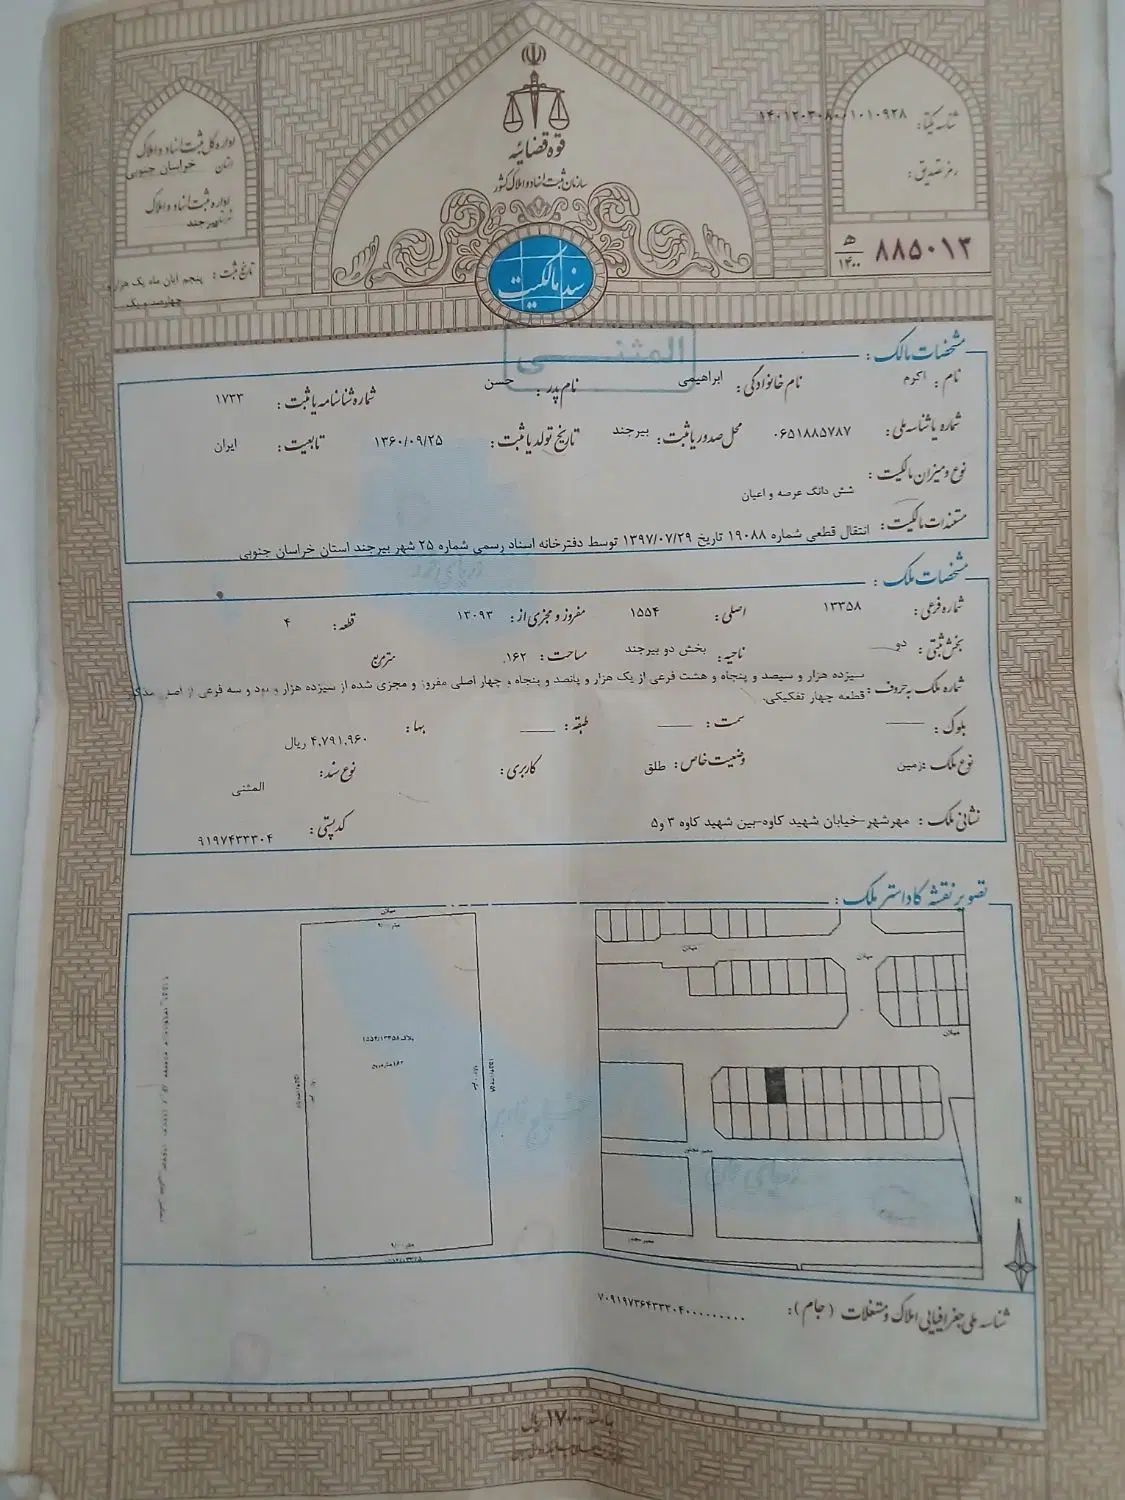 قوه قضائیه
سازمان ثبت اسناد و املاک کشور
اداره کل ثبت اسناد و املاک
استان خراسان جنوبی
اداره ثبت اسناد و املاک
بیرجند
تاریخ ثبت: پنجم آبان ماه یک هزار و
چهارصد و یک
شناسه یکتا: ۱۴۰۱۲۰۳۰۸۰۰۱۰۱۰۹۲۸
رمز تصدیق:
۸۸۵۰۱۳ ه‍ ۱۴۰۰
سند مالکیت
المثنی
مشخصات مالک:
نام: اکرم نام خانوادگی: ابراهیمی نام پدر: حسن شماره شناسنامه یا ثبت: ۱۷۳۳
شماره یا شناسه ملی: ۰۶۵۱۸۸۵۷۸۷ محل صدور یا ثبت: بیرجند تاریخ تولد یا ثبت: ۱۳۶۰/۰۹/۲۵ تابعیت: ایران
نوع و میزان مالکیت: شش دانگ عرصه و اعیان
مستندات مالکیت: انتقال قطعی شماره ۱۹۰۸۸ تاریخ ۱۳۹۷/۰۷/۲۹ توسط دفترخانه اسناد رسمی شماره ۲۵ شهر بیرجند استان خراسان جنوبی
مشخصات ملک:
شماره فرعی: ۱۳۳۵۸ اصلی: ۱۵۵۴ مفروز و مجزی از: ۱۳۰۹۳ قطعه: ۴
بخش ثبتی: دو ناحیه: بخش دو بیرجند مساحت: ۱۶۲. مترمربع
شماره ملک به حروف: سیزده هزار و سیصد و پنجاه و هشت فرعی از یک هزار و پانصد و پنجاه و چهار اصلی مفروز و مجزی شده از سیزده هزار و نود و سه فرعی از اصلی مذکور
قطعه چهار تفکیکی.
بلوک: سمت: طبقه: بها: ۴,۷۹۱,۹۶۰ ریال
نوع ملک: زمین وضعیت خاص: طلق کاربری: نوع سند: المثنی
نشانی ملک: مهرشهر-خیابان شهید کاوه-بین شهید کاوه ۳ و۵ کدپستی: ۹۱۹۷۴۳۳۳۰۴
تصویر نقشه کاداستر ملک:
میلان
میلان
میلان
میلان
پلاک ۱۵۵۴/۱۳۳۵۸
N
شناسه ملی جغرافیایی املاک و مستغلات (جام): ۷۰۹۱۹۷۳۶۴۳۳۳۰۴۰۰۰۰۰۰۰۰